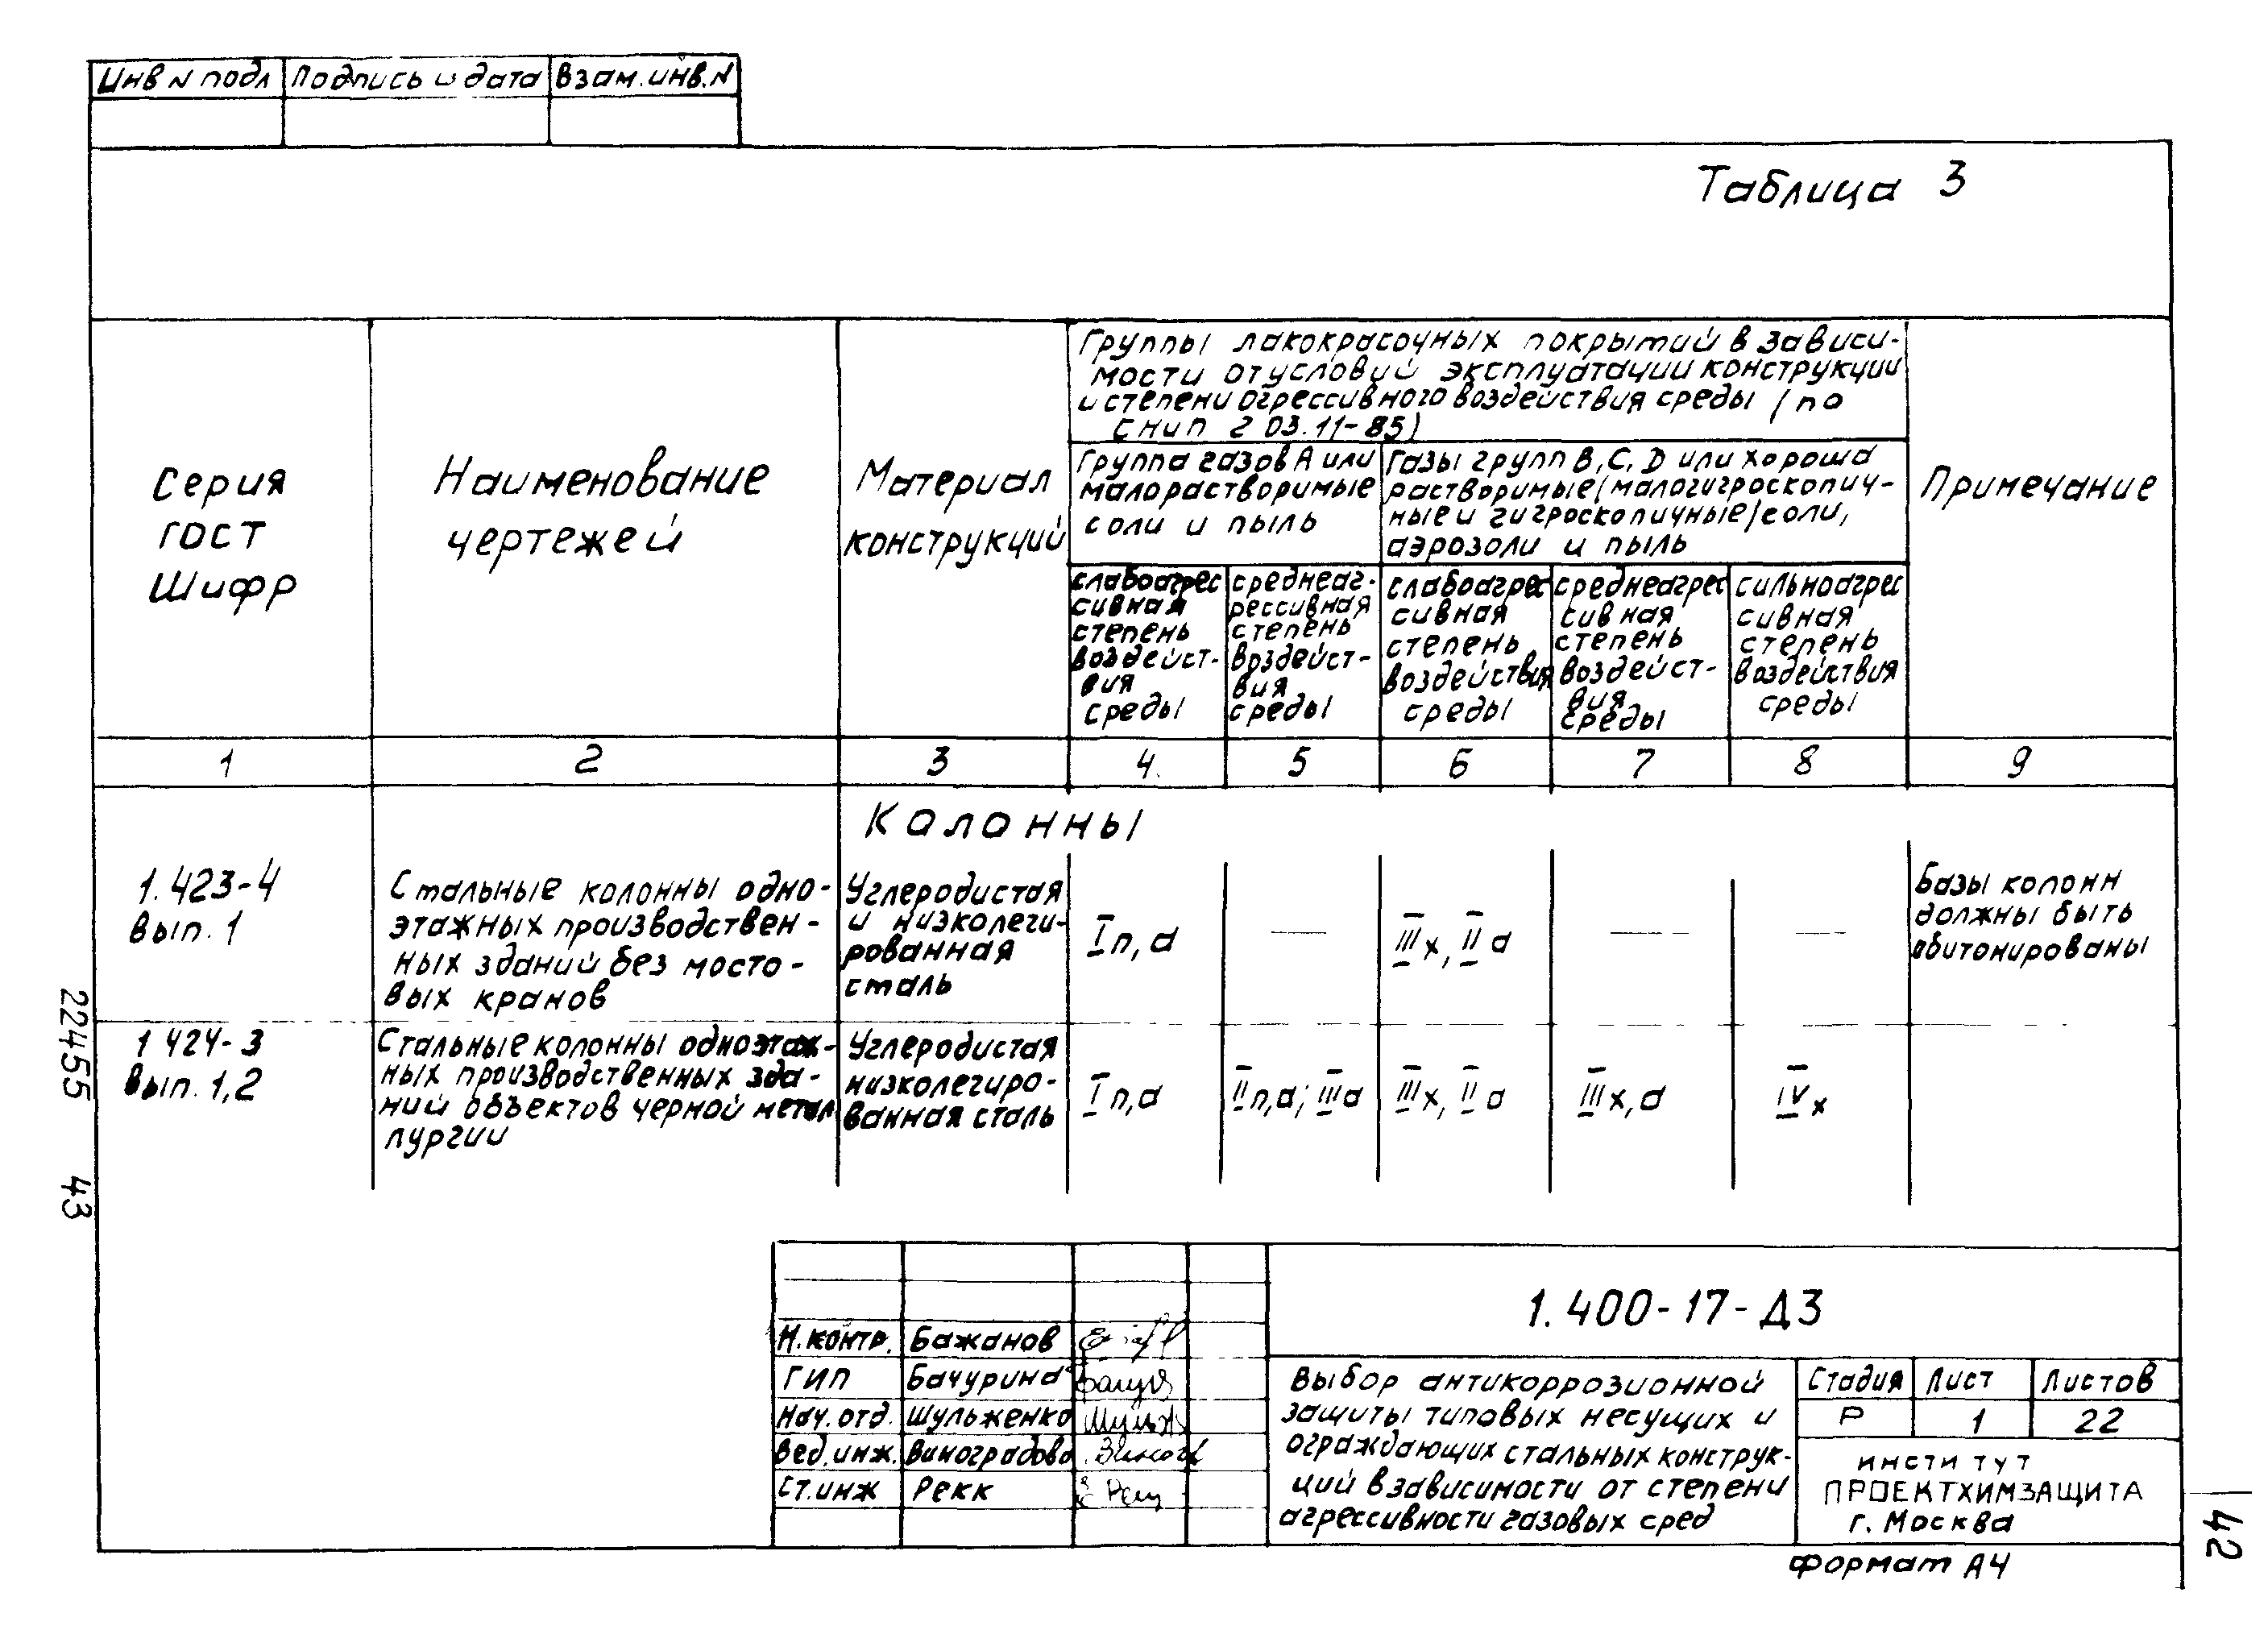 Инв N подл Подпись и дата Взам.инв.N
Таблица 3
Серия
ГОСТ
Шифр
Наименование
чертежей
Материал
конструкций
Группы лакокрасочных покрытий в зависи-
мости от условий эксплуатации конструкции
и степени огрессивного воздействия среды (по
СНиП 2 03.11-85)
Группа газов А или
малорастворимые
соли и пыль
Газы групп В, С, D или хорошо
растворимые (малогигроскопич-
ные и гигроскопичные) соли,
аэрозоли и пыль
слабоагрес
сивная
степень
воздейст-
вия
среды
среднеаг-
рессивная
степень
воздейст-
вия
среды
слабоагрес
сивная
степень
воздействия
среды
среднеагрес
сивная
степень
воздейст-
вия
среды
сильноагрес
сивная
степень
воздействия
среды
Примечание
1 2 3 4. 5 6 7 8 9
Колонны
1.423-4
Вып. 1
Стальные колонны одно-
этажных производствен-
ных зданий без мосто-
вых кранов
Углеродистая
и низколеги-
рованная
сталь
I п, а
—
III х, II а
—
—
Базы колонн
должны быть
обитонированы
1 424-3
Вып. 1,2
Стальные колонны одноэтаж-
ных производственных зда-
ний объектов черной метал
лургии
Углеродистая
низколегиро-
ванная сталь
I п, а
II п, а; III а
III х, II а
III х, а
IV х
22455 43
Н.контр. Бажанов
ГИП Бачурина
Нач.отд. Шульженко
Вед.инж. Виноградова
Ст.инж Рекк
1.400-17-Д3
Выбор антикоррозионной
защиты типовых несущих и
ограждающих стальных конструк-
ций в зависимости от степени
агрессивности газовых сред
Стадия Лист Листов
Р 1 22
ИНСТИТУТ
ПРОЕКТХИМЗАЩИТА
г. Москва
Формат А4
42